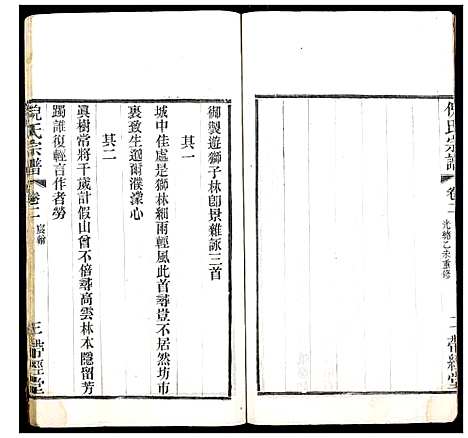 倪氏宗譜
卷二
光緒乙未重修
二
帶經堂
御製遊獅子林卽景雜詠三首
其一
城中佳處是獅林細雨輕風此首尋豈不居然坊市
裏致生邈爾濮濠心
其二
眞樹常將千歲計假山曾不倍尋高雲林本隱留芳
躅誰復輕言作者勞
倪氏宗譜
卷二
宸翰
三
帶經堂